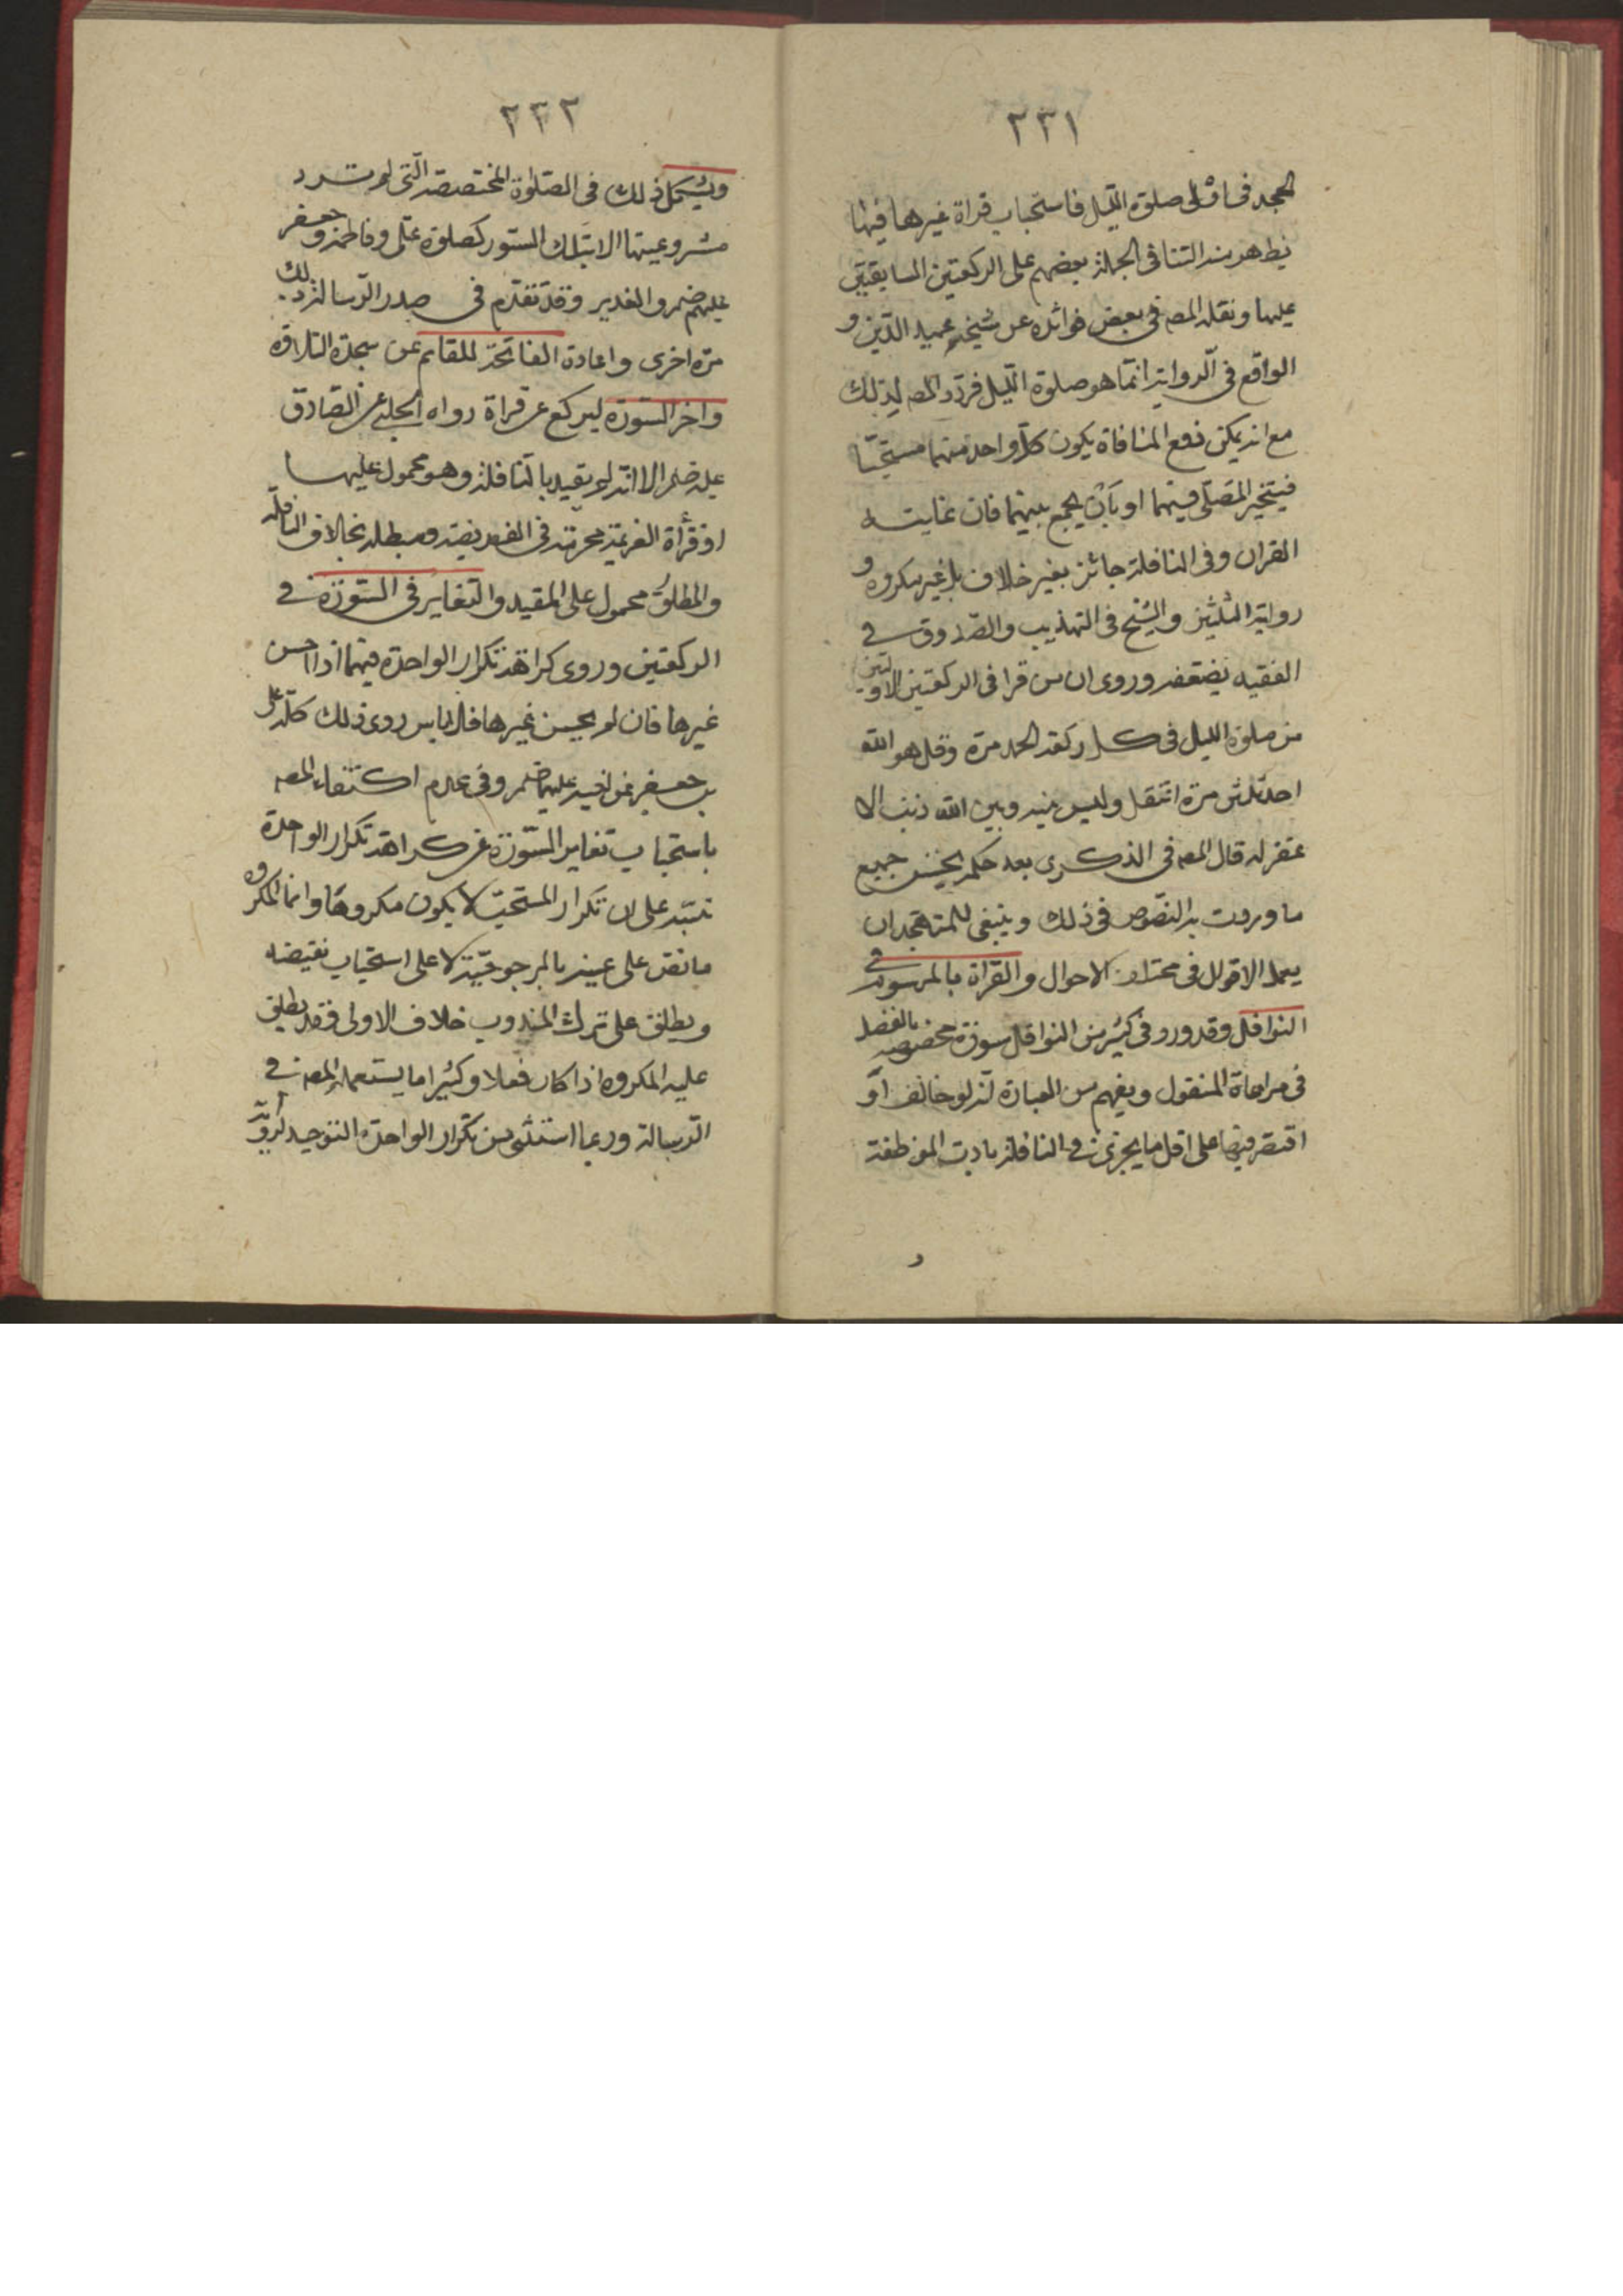 ٢٣١
الجحد فى اوّلى صلوة الليل فاستحباب قراة غيرها فيها
يظهر منه التنافى الجملة بعضهم على الركعتين السابقتين
عليها ونقله المص فى بعض فوائده عن شيخه عميد الدّين و
الواقع فى الّرواية انّما هو صلوة اللّيل فردّد المص لذلك
مع انه يمكن دفع المنافاة بكون كلّ واحد منهما مستحبّا
فيتخير المصلّى فيهما او بان يجمع بينهما فان غايته
القران وفى النافلة جائز بغير خلاف بل غير مكروه و
رواية الثلثين والشيخ فى التهذيب والصّدوق فى
الفقيه وروى ان من قرا فى الركعتين الاوليين
من صلوة الليل فى كل ركعة الحمد مرة وقل هو الله
احد ثلثين مرة انفتل وليس بينه وبين الله ذنب الا
غفر له قال المص فى الذكرى بعد حكمه جميع
ما وردت به النصوص فى ذلك وينبغى للمتهجد ان
يعمل الاقوال فى مختلف الاحوال والقراة بالمرسوم فى
النوافل وقد ورد فى كثير من النوافل سورة مخصوصه بالفضل
فى مراعاة المنقول ويفهم من العبارة انّه لو خالف او
اقتصر فيها على اقل ما يجزى فى النافلة تادت الموظفة
و
٢٣٢
ويشكل ذلك فى الصّلواة المختصة الّتى لم ترد
مشروعيتها الا بتلك السّور كصلوة علّى وفاطمة وجعفر
عليهم والغدير وقد تقدّم فى صدر الرّسالة ذلك
مرّة اخرى واعادة الفاتحة للقائم من سجدة التلاوة
واخر السّورة ليركع عن قراة رواه الحلبى عن الصّادق
عليه الا انّه لم يقيد بالنّافلة وهو محمول عليها
اذ قراة العزيمة محرمة فى الفريضة ومبطلة بخلاف النافلة
والمطلق محمول على المقيد والتغاير فى السّورة فى
الركعتين وروى كراهة تكرار الواحدة فيهما اذا احسن
غيرها فان لم يحسن غيرها فلا باس روى ذلك كلّه على
بن جعفر عن اخيه عليهما وفى عدم اكتفاء المص
باستحباب تغاير السّورة عن كراهة تكرار الواحدة
تنبّه على ان تكرار المستحبّ لا يكون مكروها وانما المكروه
ما نص على عينه بالمرجوحيّة لا على استحباب نقيضه
ويطلق على ترك المندوب خلاف الاولى وقد يطلق
عليه المكروه اذا كان فعلا وكثيرا ما يستعمله المص فى
الرّسالة وربما استثنى من تكرار الواحدة التوحيد لرواية